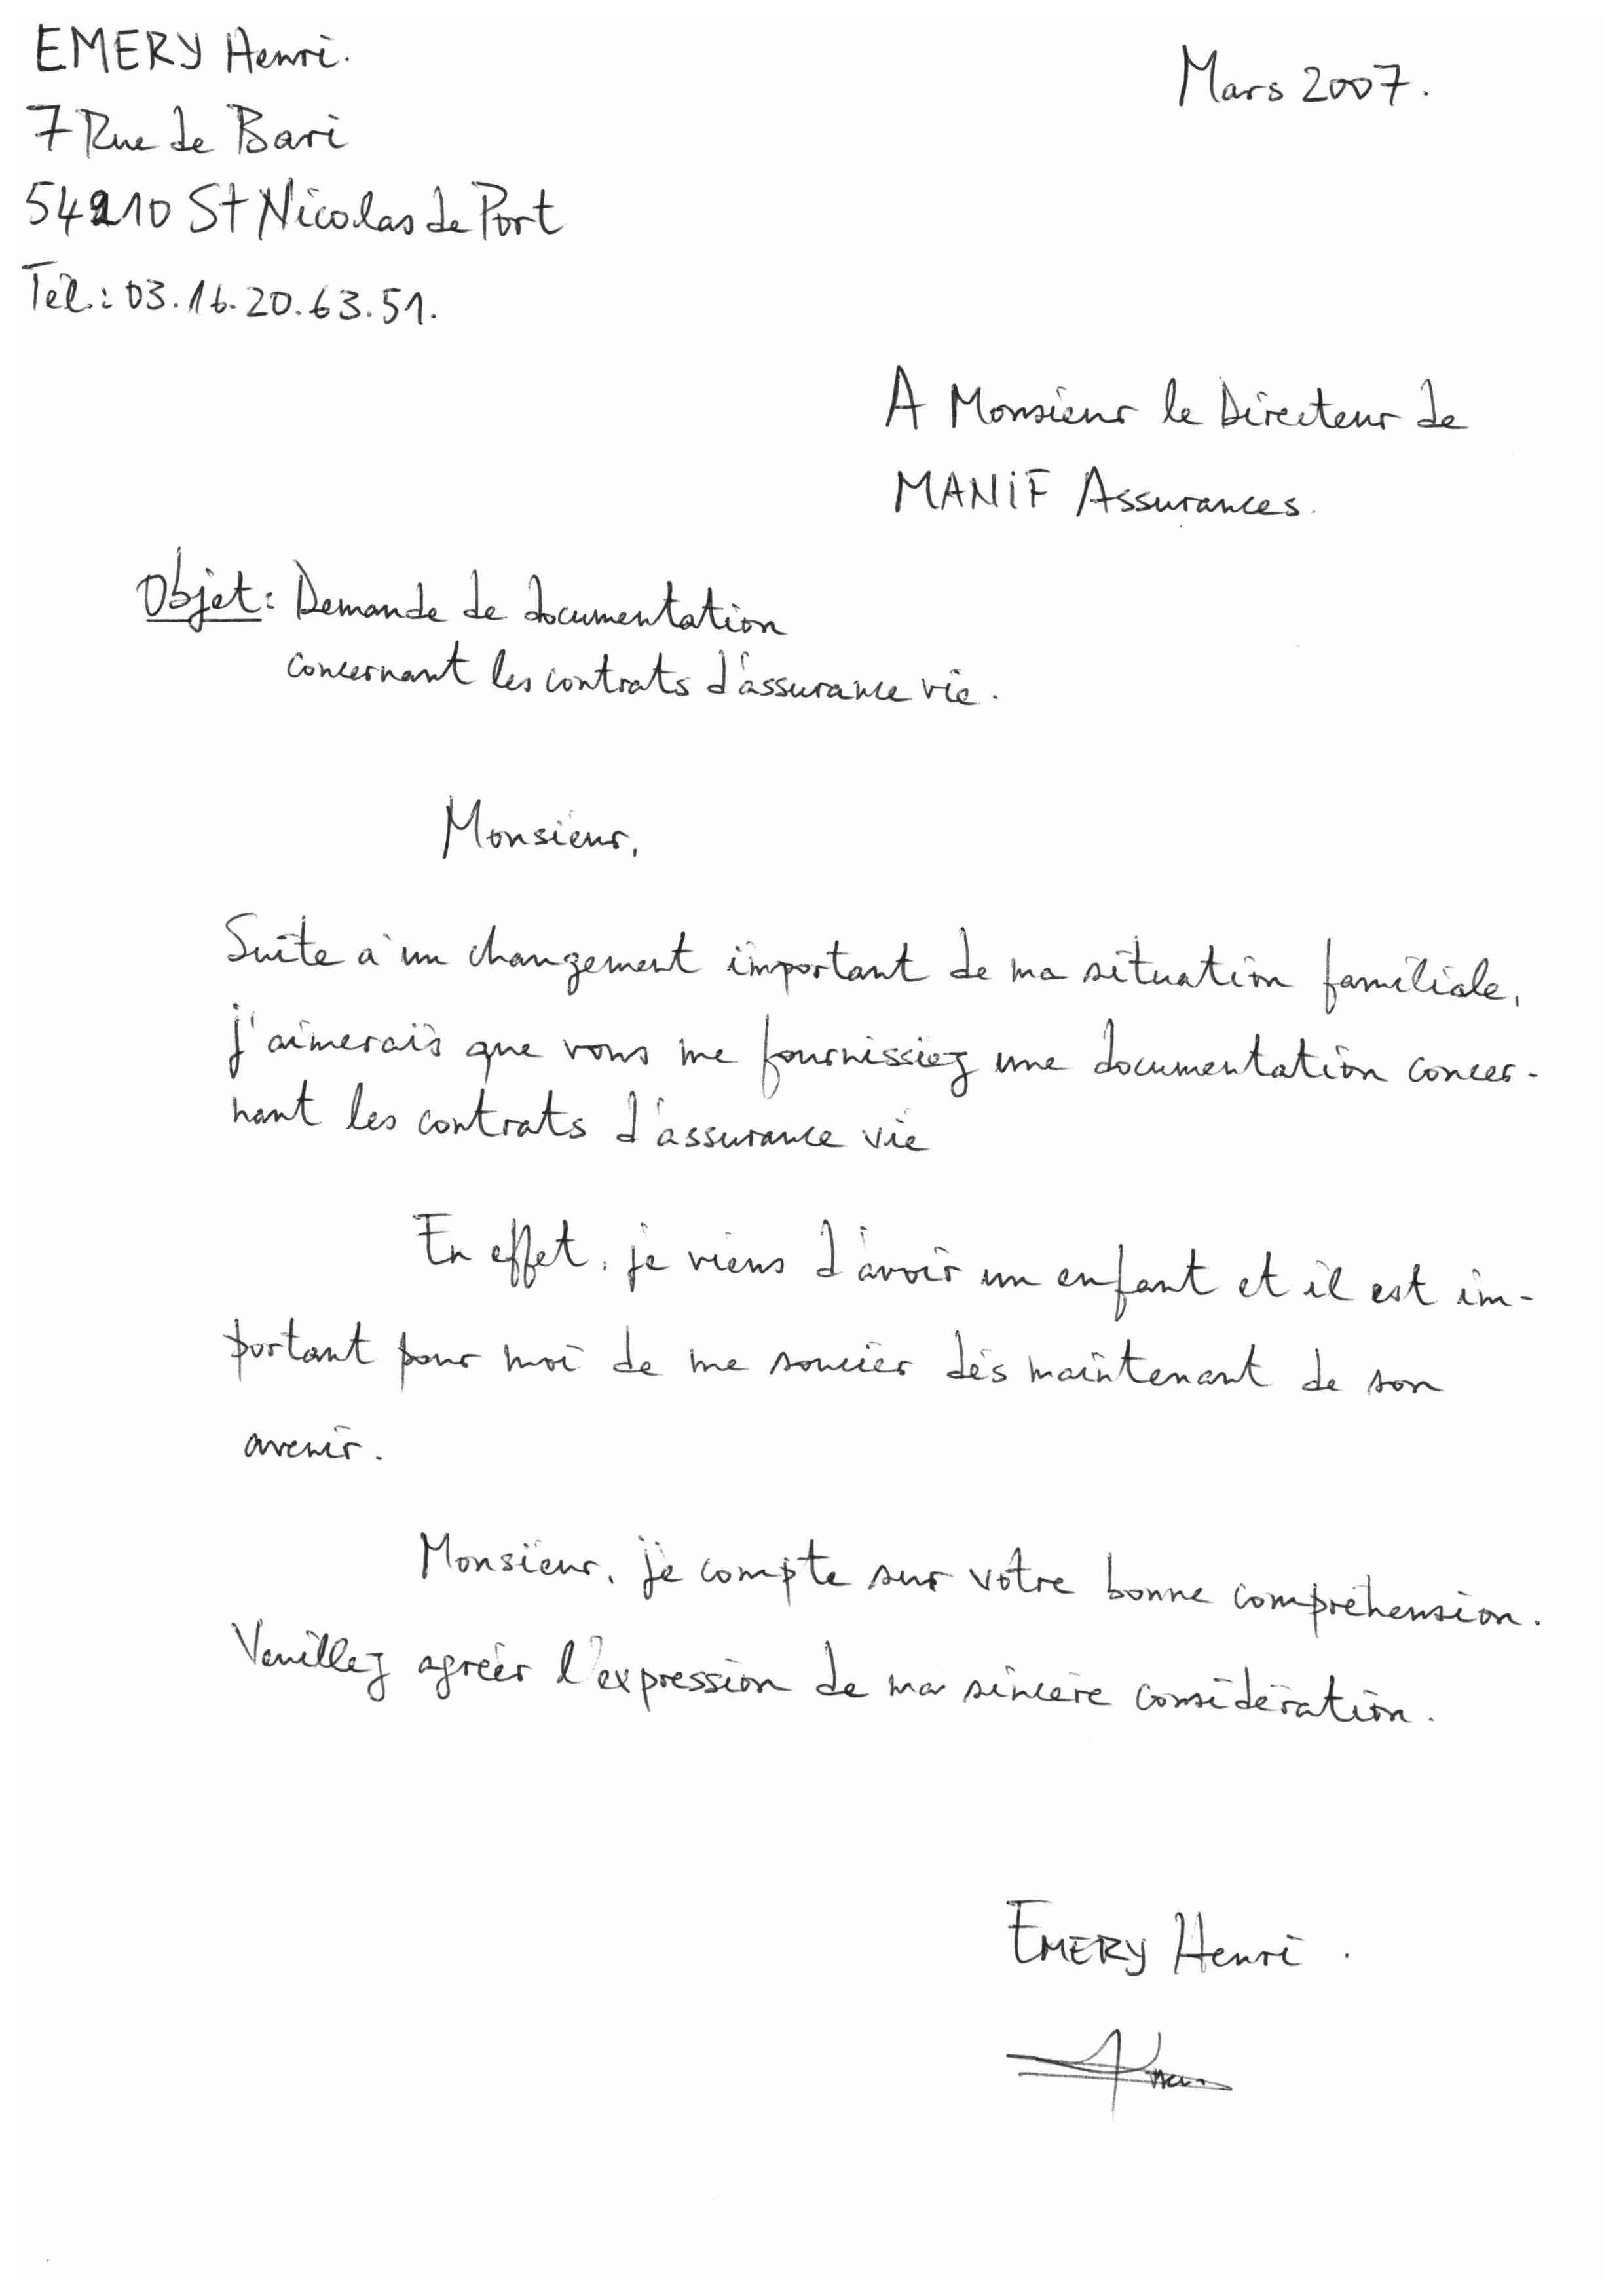 EMERY Henri.
Mars 2007.
7 Rue de Bari
54210 St Nicolas de Port
Tél.: 03.16.20.63.51.
A Monsieur le Directeur de
MANIF Assurances.
Objet: Demande de documentation
concernant les contrats d'assurance vie.
Monsieur,
Suite à un changement important de ma situation familiale,
j'aimerais que vous me fournissiez une documentation concer-
nant les contrats d'assurance vie
En effet, je viens d'avoir un enfant et il est im-
portant pour moi de me soucier dès maintenant de son
avenir.
Monsieur, je compte sur votre bonne compréhension.
Veuillez agréer l'expression de ma sincère considération.
EMERY Henri.